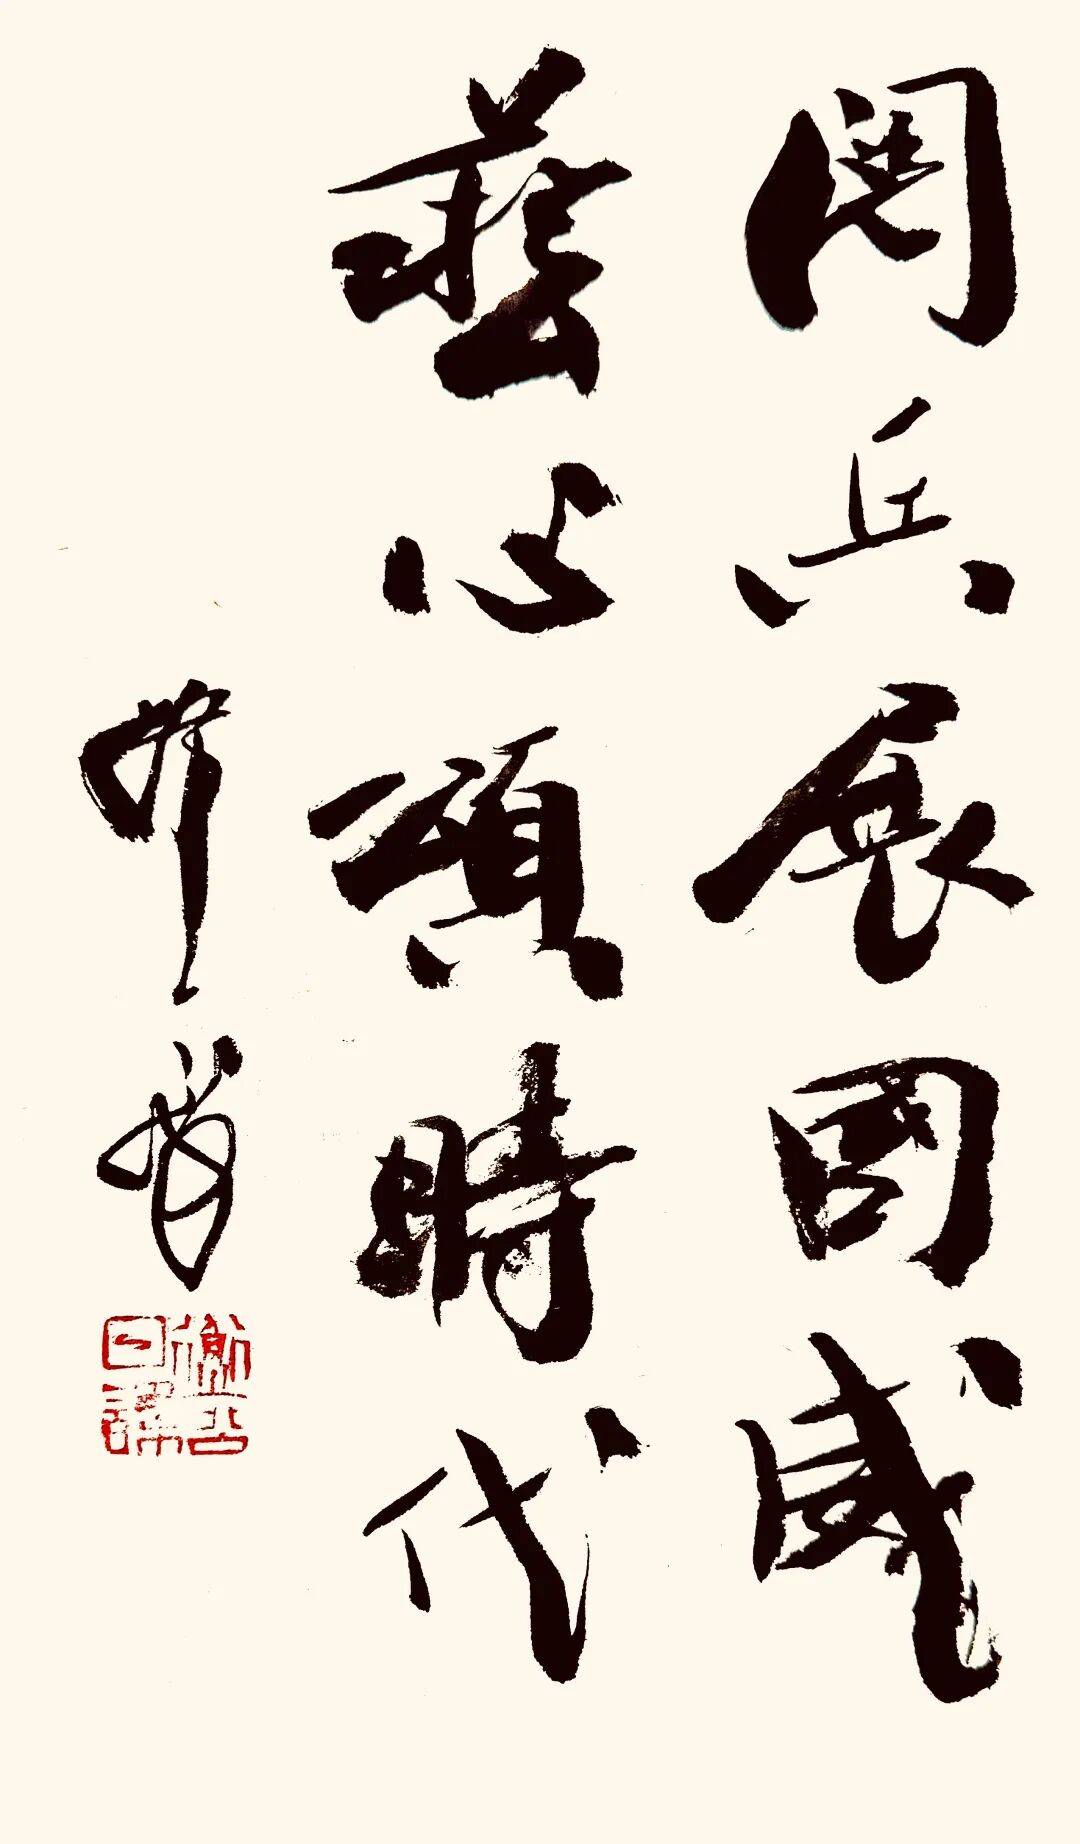 阅兵展國威
藝心頌時代